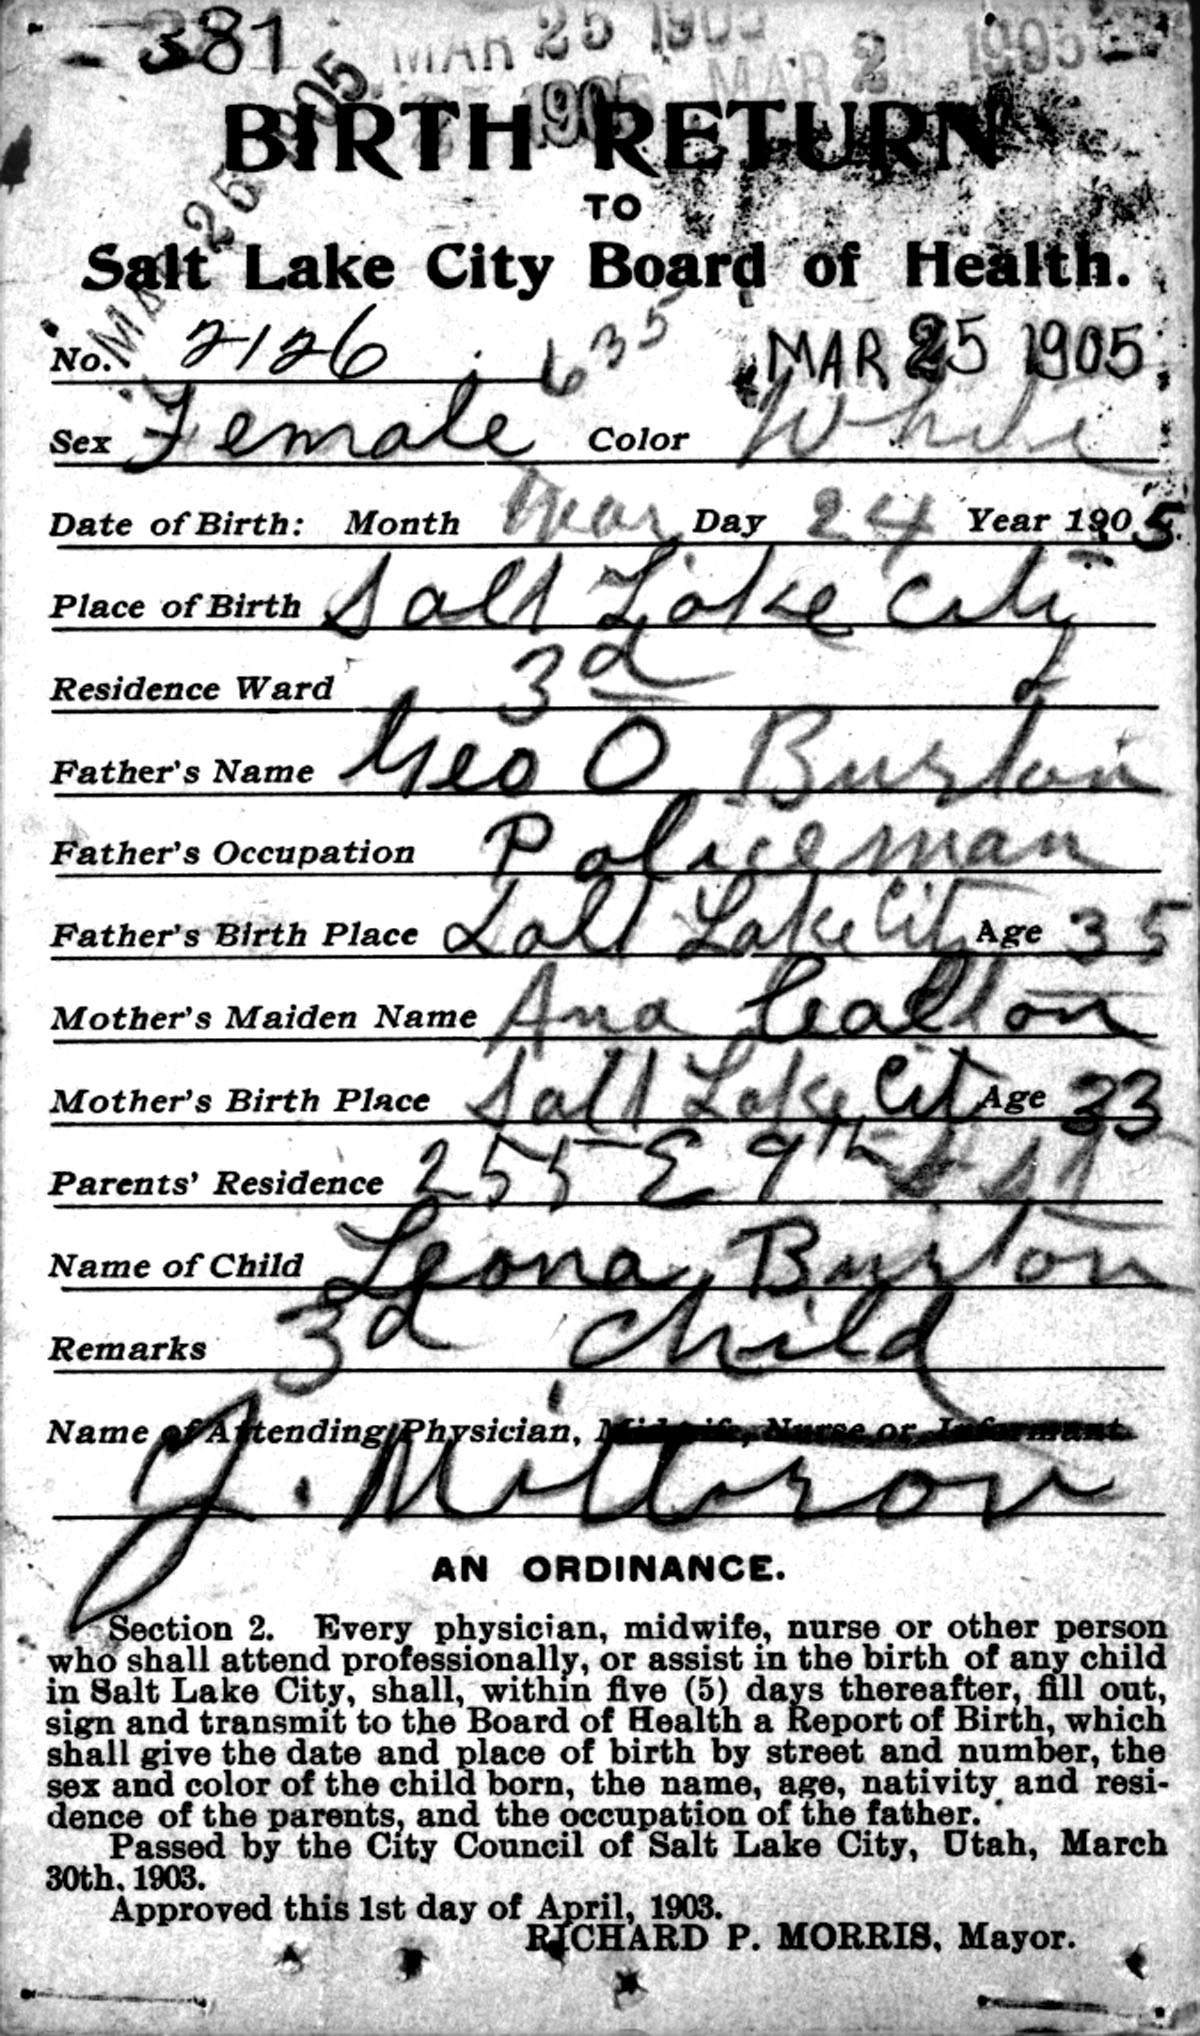 381 MAR 25 1905 MAR 2 1905
MAR 25 1905 1905
BIRTH RETURN
TO
Salt Lake City Board of Health.
No. 2126 635 MAR 25 1905
Sex Female Color White
Date of Birth: Month Mar Day 24 Year 1905
Place of Birth Salt Lake City
Residence Ward 3d
Father's Name Geo O Burton
Father's Occupation Policeman
Father's Birth Place Salt Lake City Age 35
Mother's Maiden Name Ana
Mother's Birth Place Salt Lake City Age 33
Parents' Residence 255 E 9th
Name of Child Leona Burton
Remarks 3d Child
Name of Attending Physician, Midwife, Nurse or Informant.
J.
AN ORDINANCE.
Section 2. Every physician, midwife, nurse or other person
who shall attend professionally, or assist in the birth of any child
in Salt Lake City, shall, within five (5) days thereafter, fill out,
sign and transmit to the Board of Health a Report of Birth, which
shall give the date and place of birth by street and number, the
sex and color of the child born, the name, age, nativity and resi-
dence of the parents, and the occupation of the father.
Passed by the City Council of Salt Lake City, Utah, March
30th, 1903.
Approved this 1st day of April, 1903.
RICHARD P. MORRIS, Mayor.